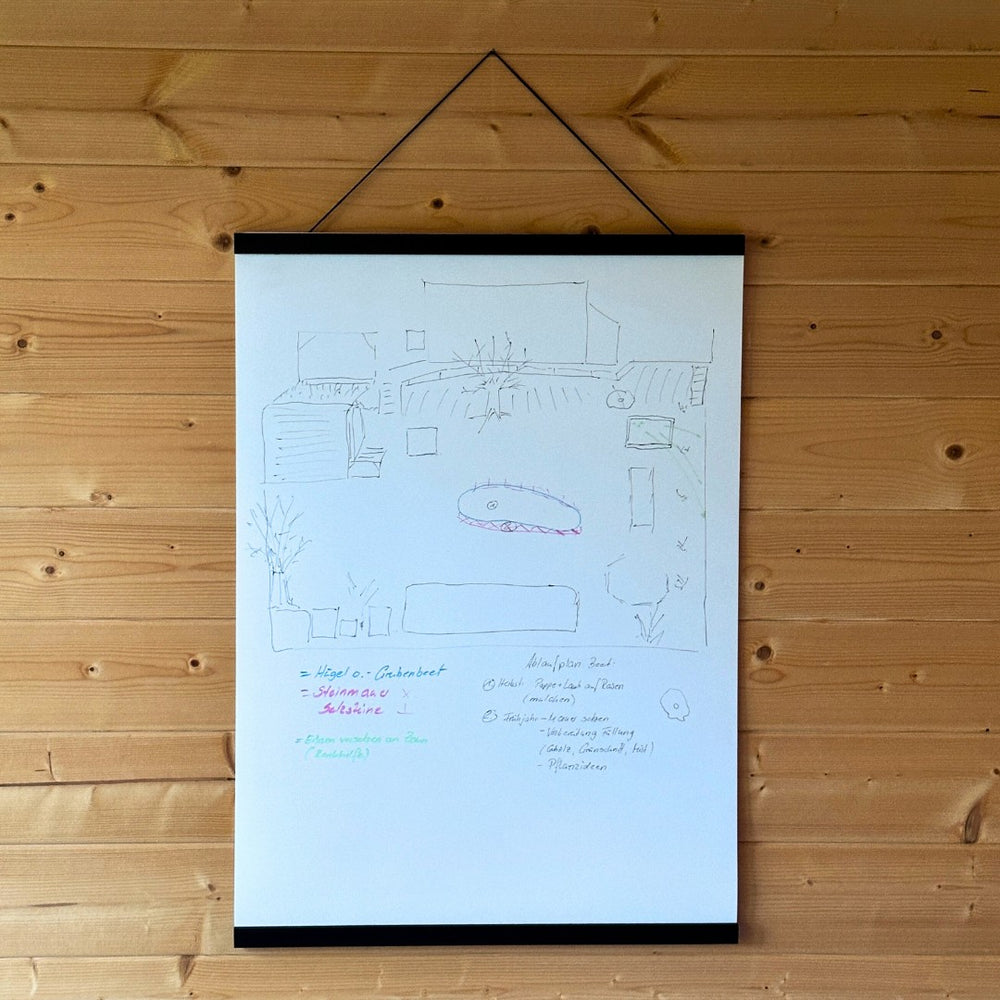 = Hügel o. - Grubenbeet
= Steinmauer x
Setzsteine ⊥
= versetzen an Zaun
(Rankhilfe)
Ablaufplan Beet:
① Herbst: Pappe + Laub auf Rasen
(mulchen)
② Frühjahr - Mauer setzen
- Vorbereitung Füllung
(Gehölz, Grünschnitt, Mist)
- Pflanzideen